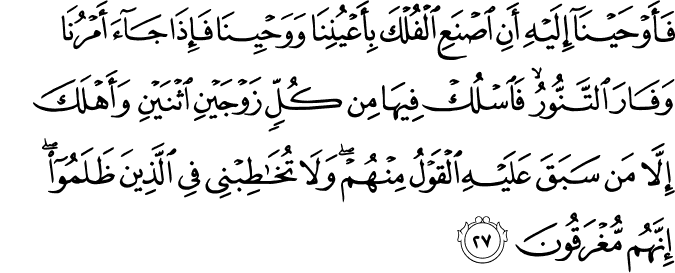 فَأَوۡحَيۡنَآ إِلَيۡهِ أَنِ ٱصۡنَعِ ٱلۡفُلۡكَ بِأَعۡيُنِنَا وَوَحۡيِنَا فَإِذَا جَآءَ أَمۡرُنَا
وَفَارَ ٱلتَّنُّورُ ۙ فَٱسۡلُكۡ فِيهَا مِن كُلّٖ زَوۡجَيۡنِ ٱثۡنَيۡنِ وَأَهۡلَكَ
إِلَّا مَن سَبَقَ عَلَيۡهِ ٱلۡقَوۡلُ مِنۡهُمۡۖ وَلَا تُخَٰطِبۡنِي فِي ٱلَّذِينَ ظَلَمُوٓاْۖ
إِنَّهُم مُّغۡرَقُونَ ٢٧